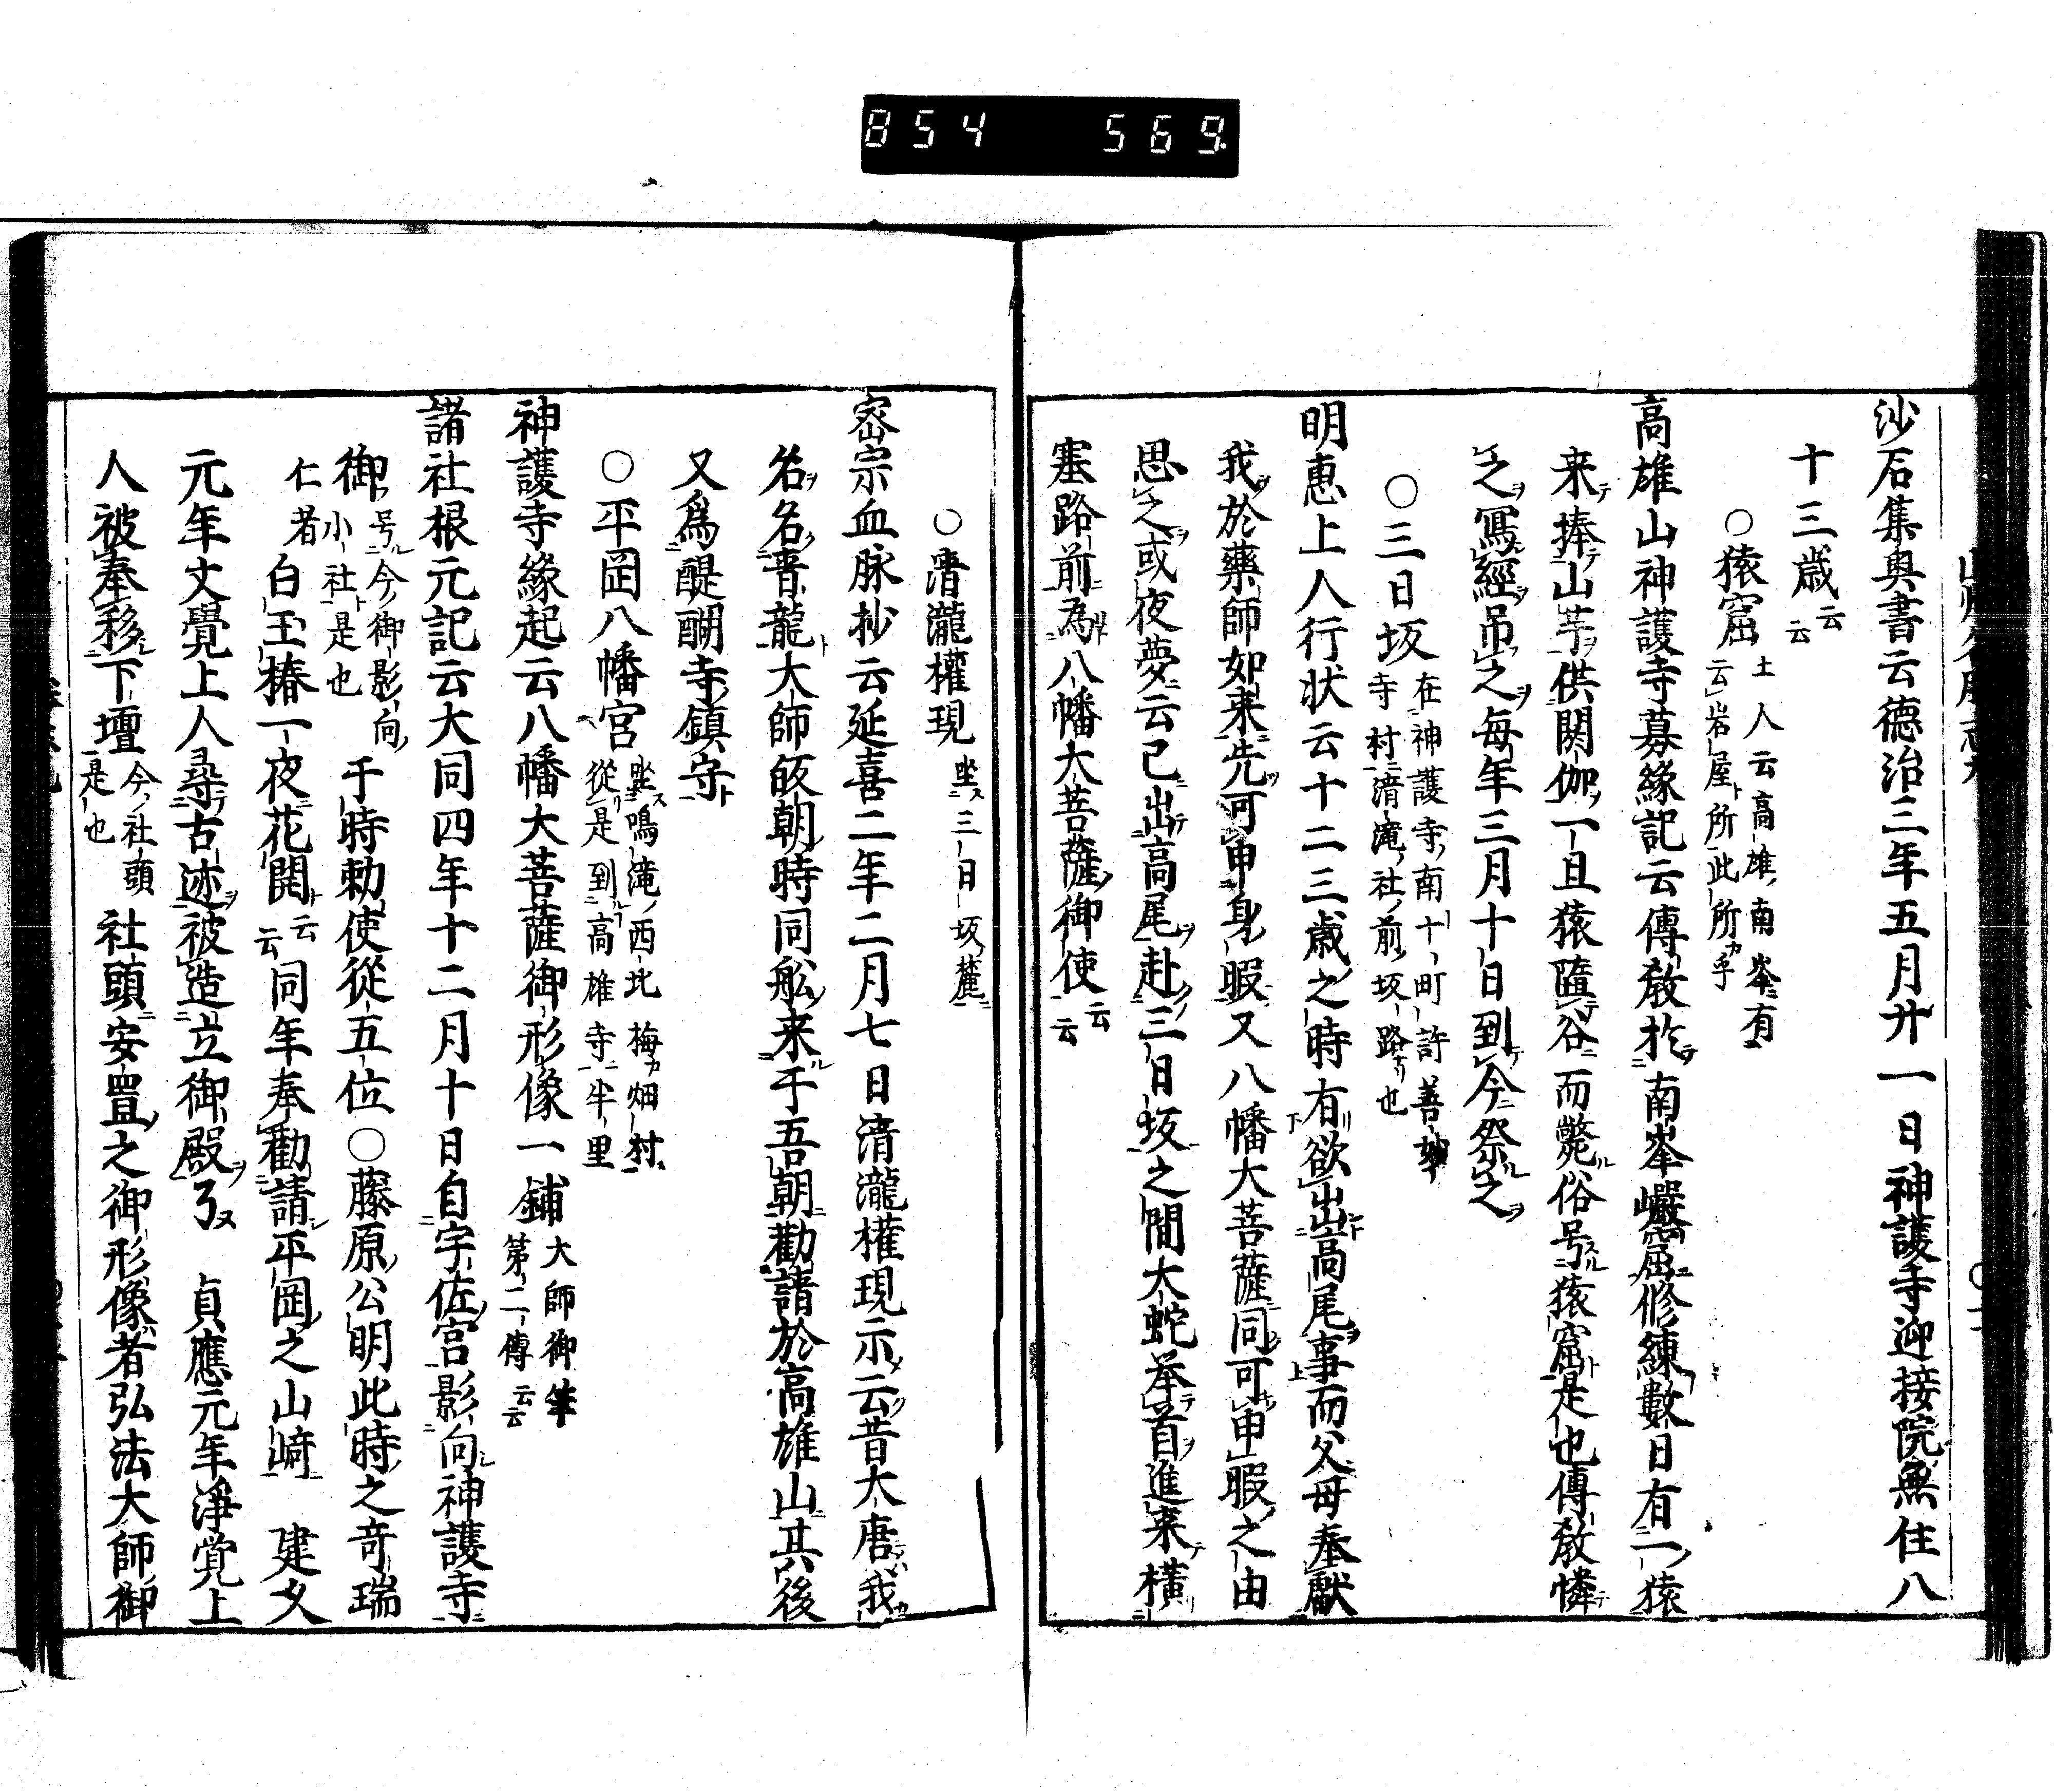 854 569
沙石集奥書云德治三年五月廿一日神護寺迎接院無住八
十三歳云云
○猿窟土人云高雄南峯有
云岩屋所此所乎
高雄山神護寺募緣記云傳敎於南峯巖窟修練數日有一猿
来捧山芋供閼伽一旦猿隨谷而斃俗号猿窟是也傳敎憐
之寫經吊之毎年三月十日到今祭之
○三日坂在神護寺南十町許善妙
寺村淸滝社前坂路也
明恵上人行状云十二三歳之時有欲出高尾事而父母奉獻
我於藥師如来先可申身暇又八幡大菩薩同可申暇之由
思之或夜夢云已出高尾赴三日坂之間大蛇举首進来橫
塞路前為八幡大菩薩御使云云
○淸瀧權現坐三日坂麓
宻宗血脉抄云延喜二年二月七日淸瀧權現示云昔大唐我
名名靑龍大師皈朝時同舩来于吾朝勸請於高雄山其後
又爲醍醐寺鎮守
○平岡八幡宮坐鳴滝西北梅畑村
從是到高雄寺半里
神護寺緣起云八幡大菩薩御形像一鋪大師御筆
第二傳云云
諸社根元記云大同四年十二月十日自宇佐宮影向神護寺
御号今御影向
小社是也于時勅使從五位○藤原公明此時之竒瑞
仁者白玉椿一夜花開云云同年奉勸請平岡之山﨑　建久
元年文覺上人尋古迹被造立御殿了　貞應元年淨覚上
人被奉移下壇今社頭
是也社頭安置之御形像者弘法大師御